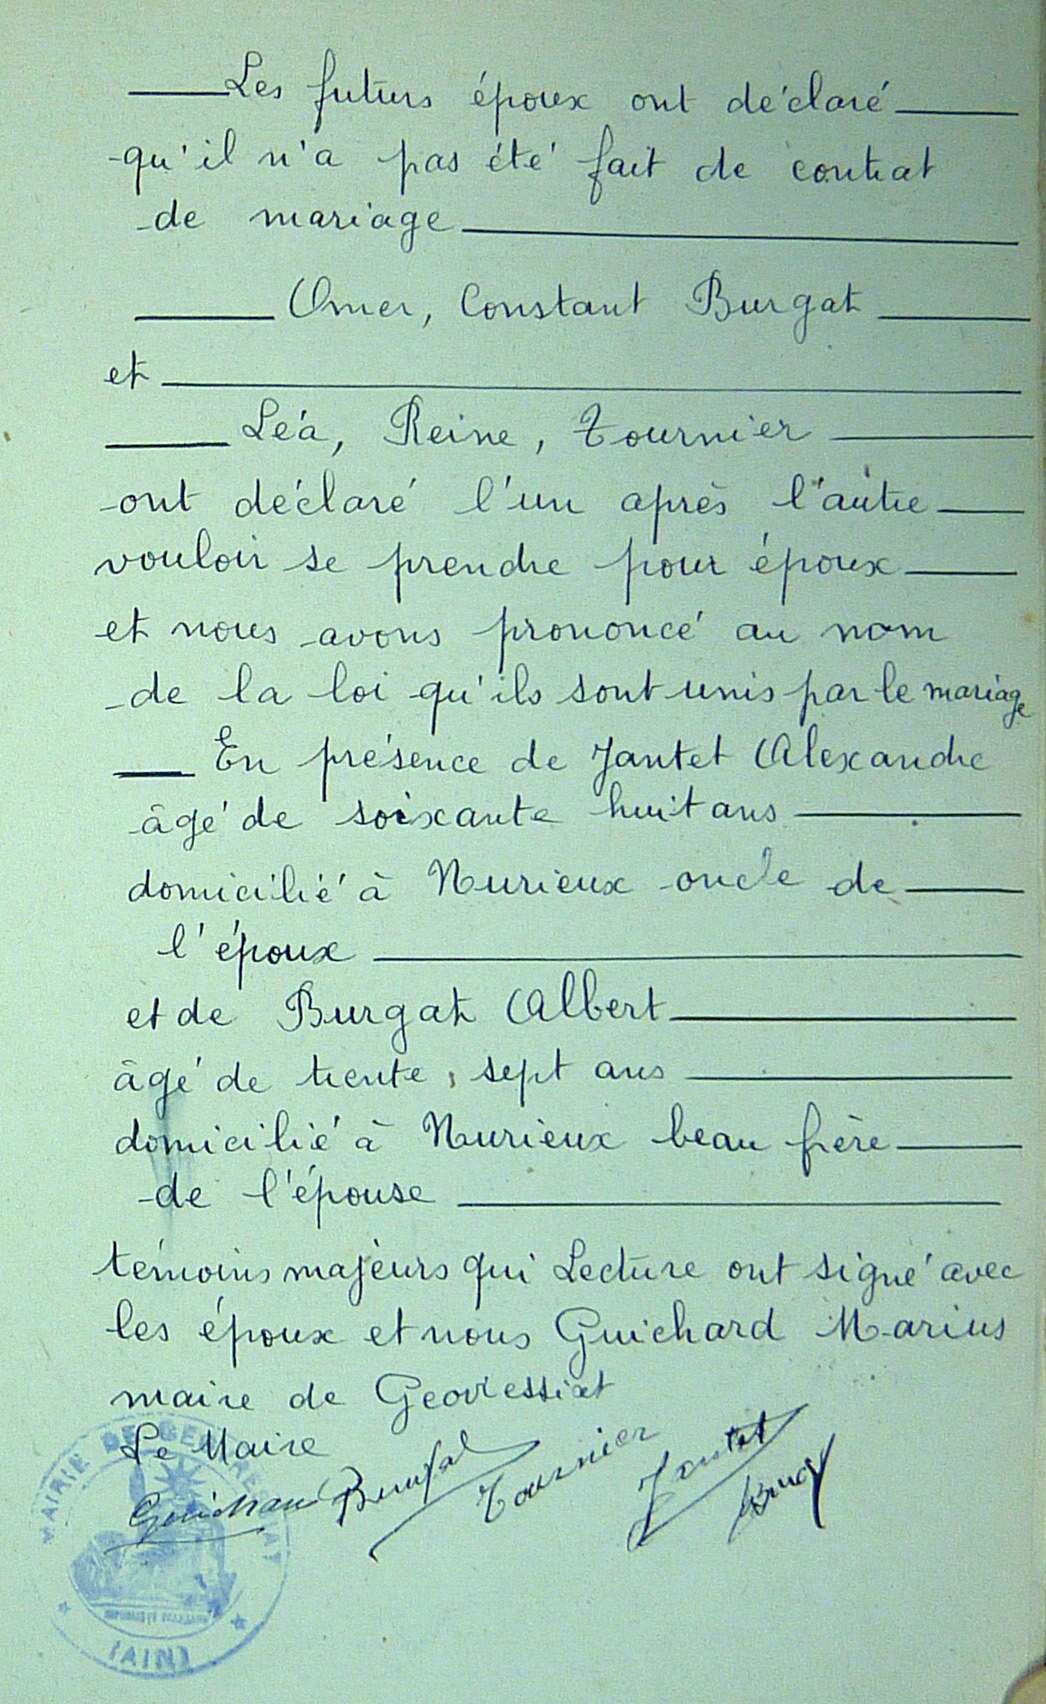 Les futurs époux ont déclaré
qu'il n'a pas été fait de contrat
de mariage
Omer, Constant Burgat
et
Léa, Reine, Tournier
ont déclaré l'un après l'autre
vouloir se prendre pour époux
et nous avons prononcé au nom
de la loi qu'ils sont unis par le mariage
En présence de Jantet Alexandre
âgé de soixante huit ans
domicilié à Nurieux oncle de
l'époux
et de Burgat Albert
âgé de trente, sept ans
domicilié à Nurieux beau frère
de l'épouse
témoins majeurs qui Lecture ont signé avec
les époux et nous Guichard Marius
maire de Geovressiat
Le Maire
Guichard Burgat Tournier Jantet
MAIRIE DE GEOVRESSIAT
(AIN)